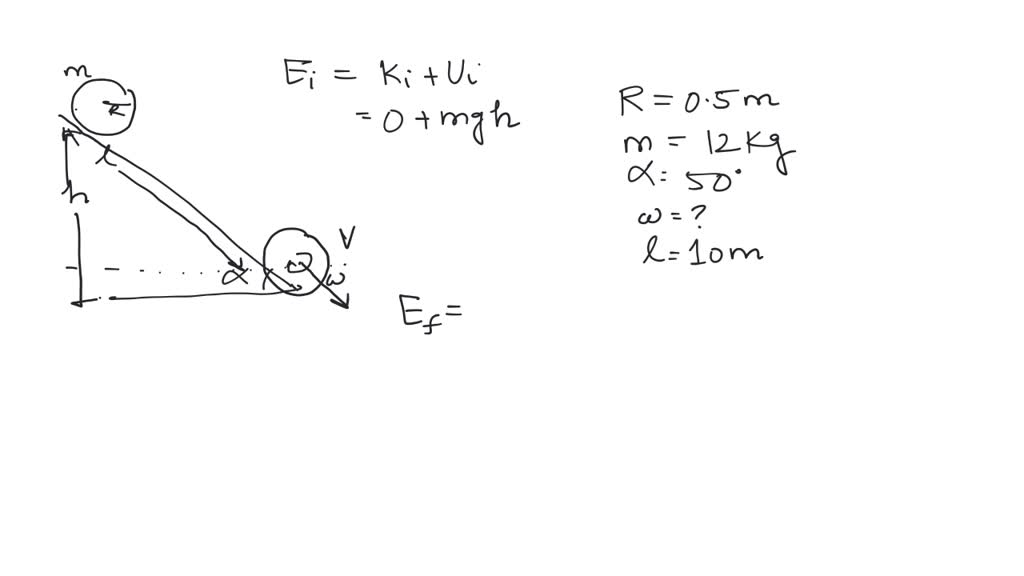 m
R
l
h
α
V
ω
E_i = K_i + U_i
= 0 + mgh
E_f =
R = 0.5 m
m = 12 kg
α = 50°
ω = ?
l = 10 m